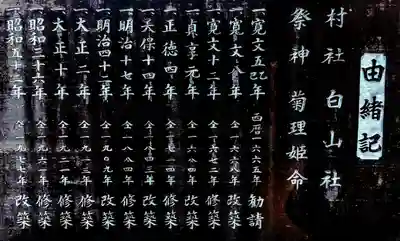 由緒記
村社 白山社
祭神 菊理姫命
一寛文五巳年 西暦一六六五年 勧請
一寛文八年 仝一六六八年 改築
一寛文十二年 仝一六七二年 修築
一貞享元年 仝一六八四年 改築
一正徳四年 仝一七一四年 修築
一天保十四年 仝一八四三年 改築
一明治十七年 仝一八八四年 修築
一明治四十二年 仝一九〇九年 改築
一大正二年 仝一九一三年 修築
一大正十年 仝一九二一年 修築
一昭和三十六年 仝一九六一年 修築
一昭和五十二年 仝一九七七年 改築